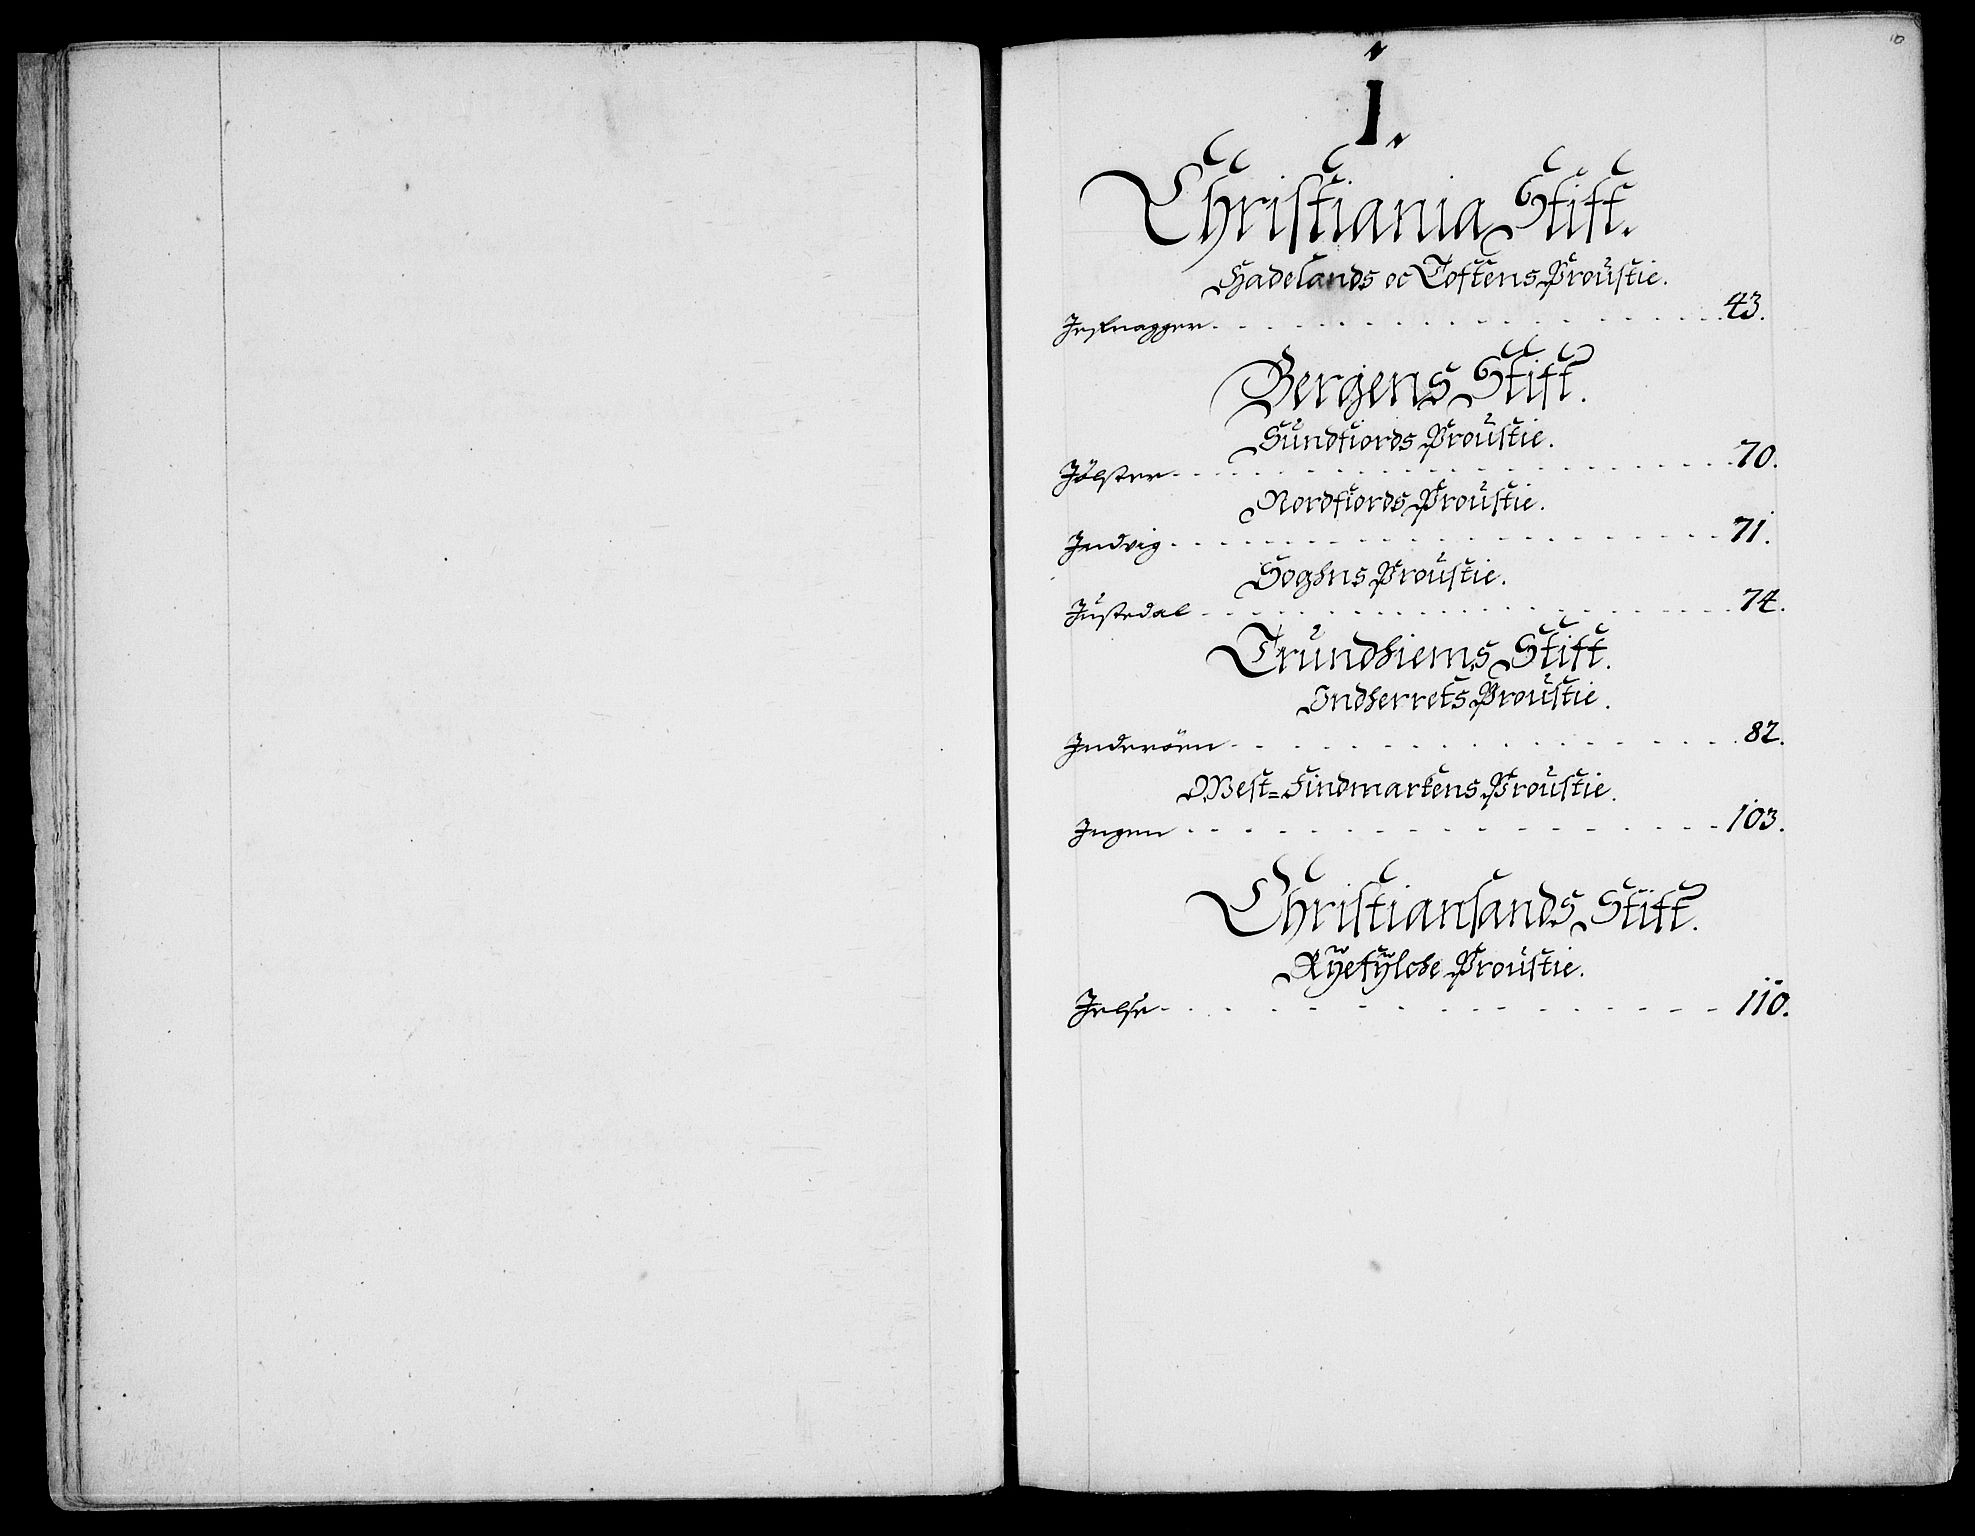 10
I.
Christiania Stift.
Hadelands oc Toftens Proustie.
Jesnagger. 43.
Bergens Stift.
Sundfiords Proustie.
Jölster 70.
Nordfiords Proustie.
Indvig 71.
Soghns Proustie.
Justedal 74.
Trundhiems Stift.
Indherrets Proustie.
Inderöen 82.
West=Findmarkens Proustie.
Ingen 103.
Christiansands Stift.
Ryefylche Proustie.
Jelse 110.